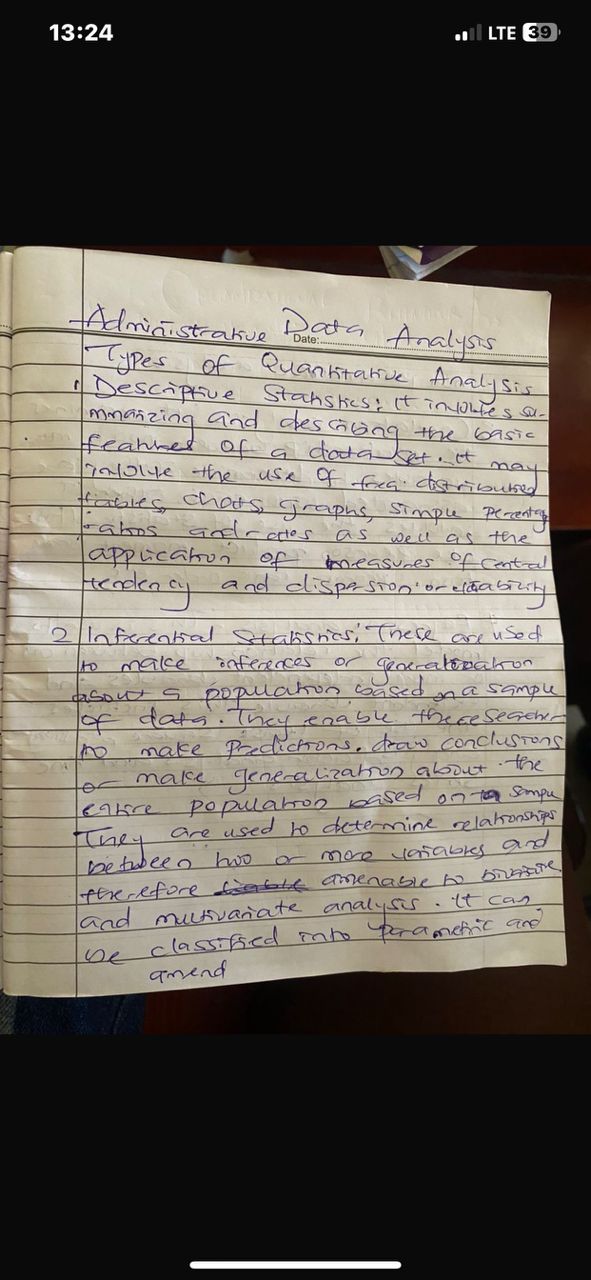 13:24
LTE 39
Administrative Data Analysis
Date:
Types of Quantitative Analysis
1 Descriptive Statistics: It involves su-
mmarizing and describing the basic
features of a data set. It may
involve the use of freq. distributed
tables, charts, graphs, simple percentage
ratios and rates as well as the
application of measures of central
tendency and dispersion or variability
2 Inferential Statistics: These are used
to make inferences or generalization
about a population based on a sample
of data. They enable the researcher
to make predictions, draw conclusions
or make generalization about the
entire population based on a sample
They are used to determine relationships
between two or more variables and
therefore amenable to bivariate
and multivariate analysis. It can
be classified into parametric and
amend